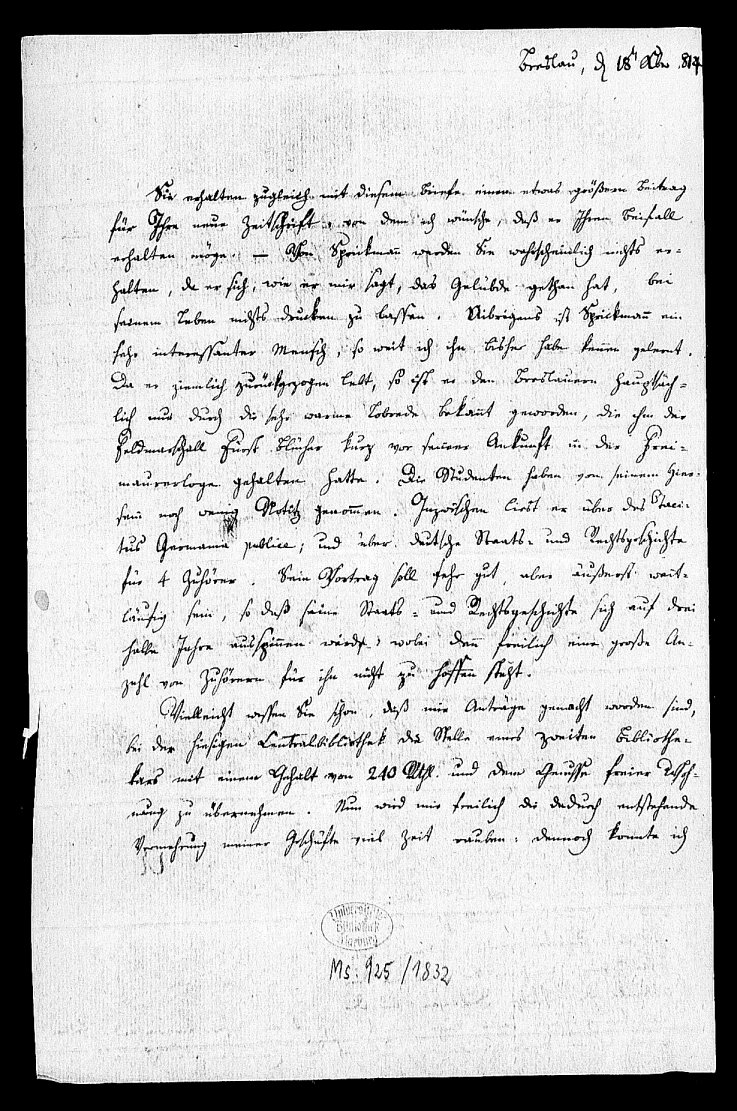 Breslau, d 18t Xbr 814
Sie erhalten zugleich mit diesem Briefe einen etwas größern Beitrag
für Ihre neue Zeitschrift, von dem ich wünsche, daß er Ihren Beifall
erhalten möge. — Von Sprickmañ werden Sie wahrscheinlich nichts er-
halten, da er sich, wie er mir sagt, das Gelübde gethan hat, bei
seinem Leben nichts drucken zu lassen. Uibrigens ist Sprickmañ ein
sehr interessanter Mensch, so weit ich ihn bisher habe keñen gelernt.
Da er ziemlich zurückgezogen lebt, so ist er den Breslauern hauptsäch-
lich nur durch die sehr warme Lobrede bekañt geworden, die ihm der
Feldmarschall Fürst Blücher kurz vor seiner Ankunft in der Frei-
maurerloge gehalten hatte. Die Studenten haben von seinem Hier-
sein noch wenig Notitz genom̄en. Inzwischen liest er über des Taci-
tus Germania publice; und über deutsche Staats- und Rechtsgeschichte
für 4 Zuhörer. Sein Vortrag soll sehr gut, aber äußerst weit-
läufig sein, so daß seine Staats- und Rechtsgeschichte sich auf drei
halbe Jahre ausspiñen würde, wobei deñ freilich eine große An-
zahl von Zuhörern für ihn nicht zu hoffen steht.
Vielleicht wissen Sie schon, daß mir Anträge gemacht worden sind,
bei der hiesigen Centralbibliothek die Stelle eines zweiten Bibliothe-
kars mit einem Gehalt von 240 Rthl. und dem Genusse freier Woh-
nung zu übernehmen. Nun wird mir freilich die daduch entstehende
Vermehrung meiner Geschäfte viel Zeit rauben: dennoch konnte ich
Universitäts
Bibliothek
Marburg
Ms. 925/1832